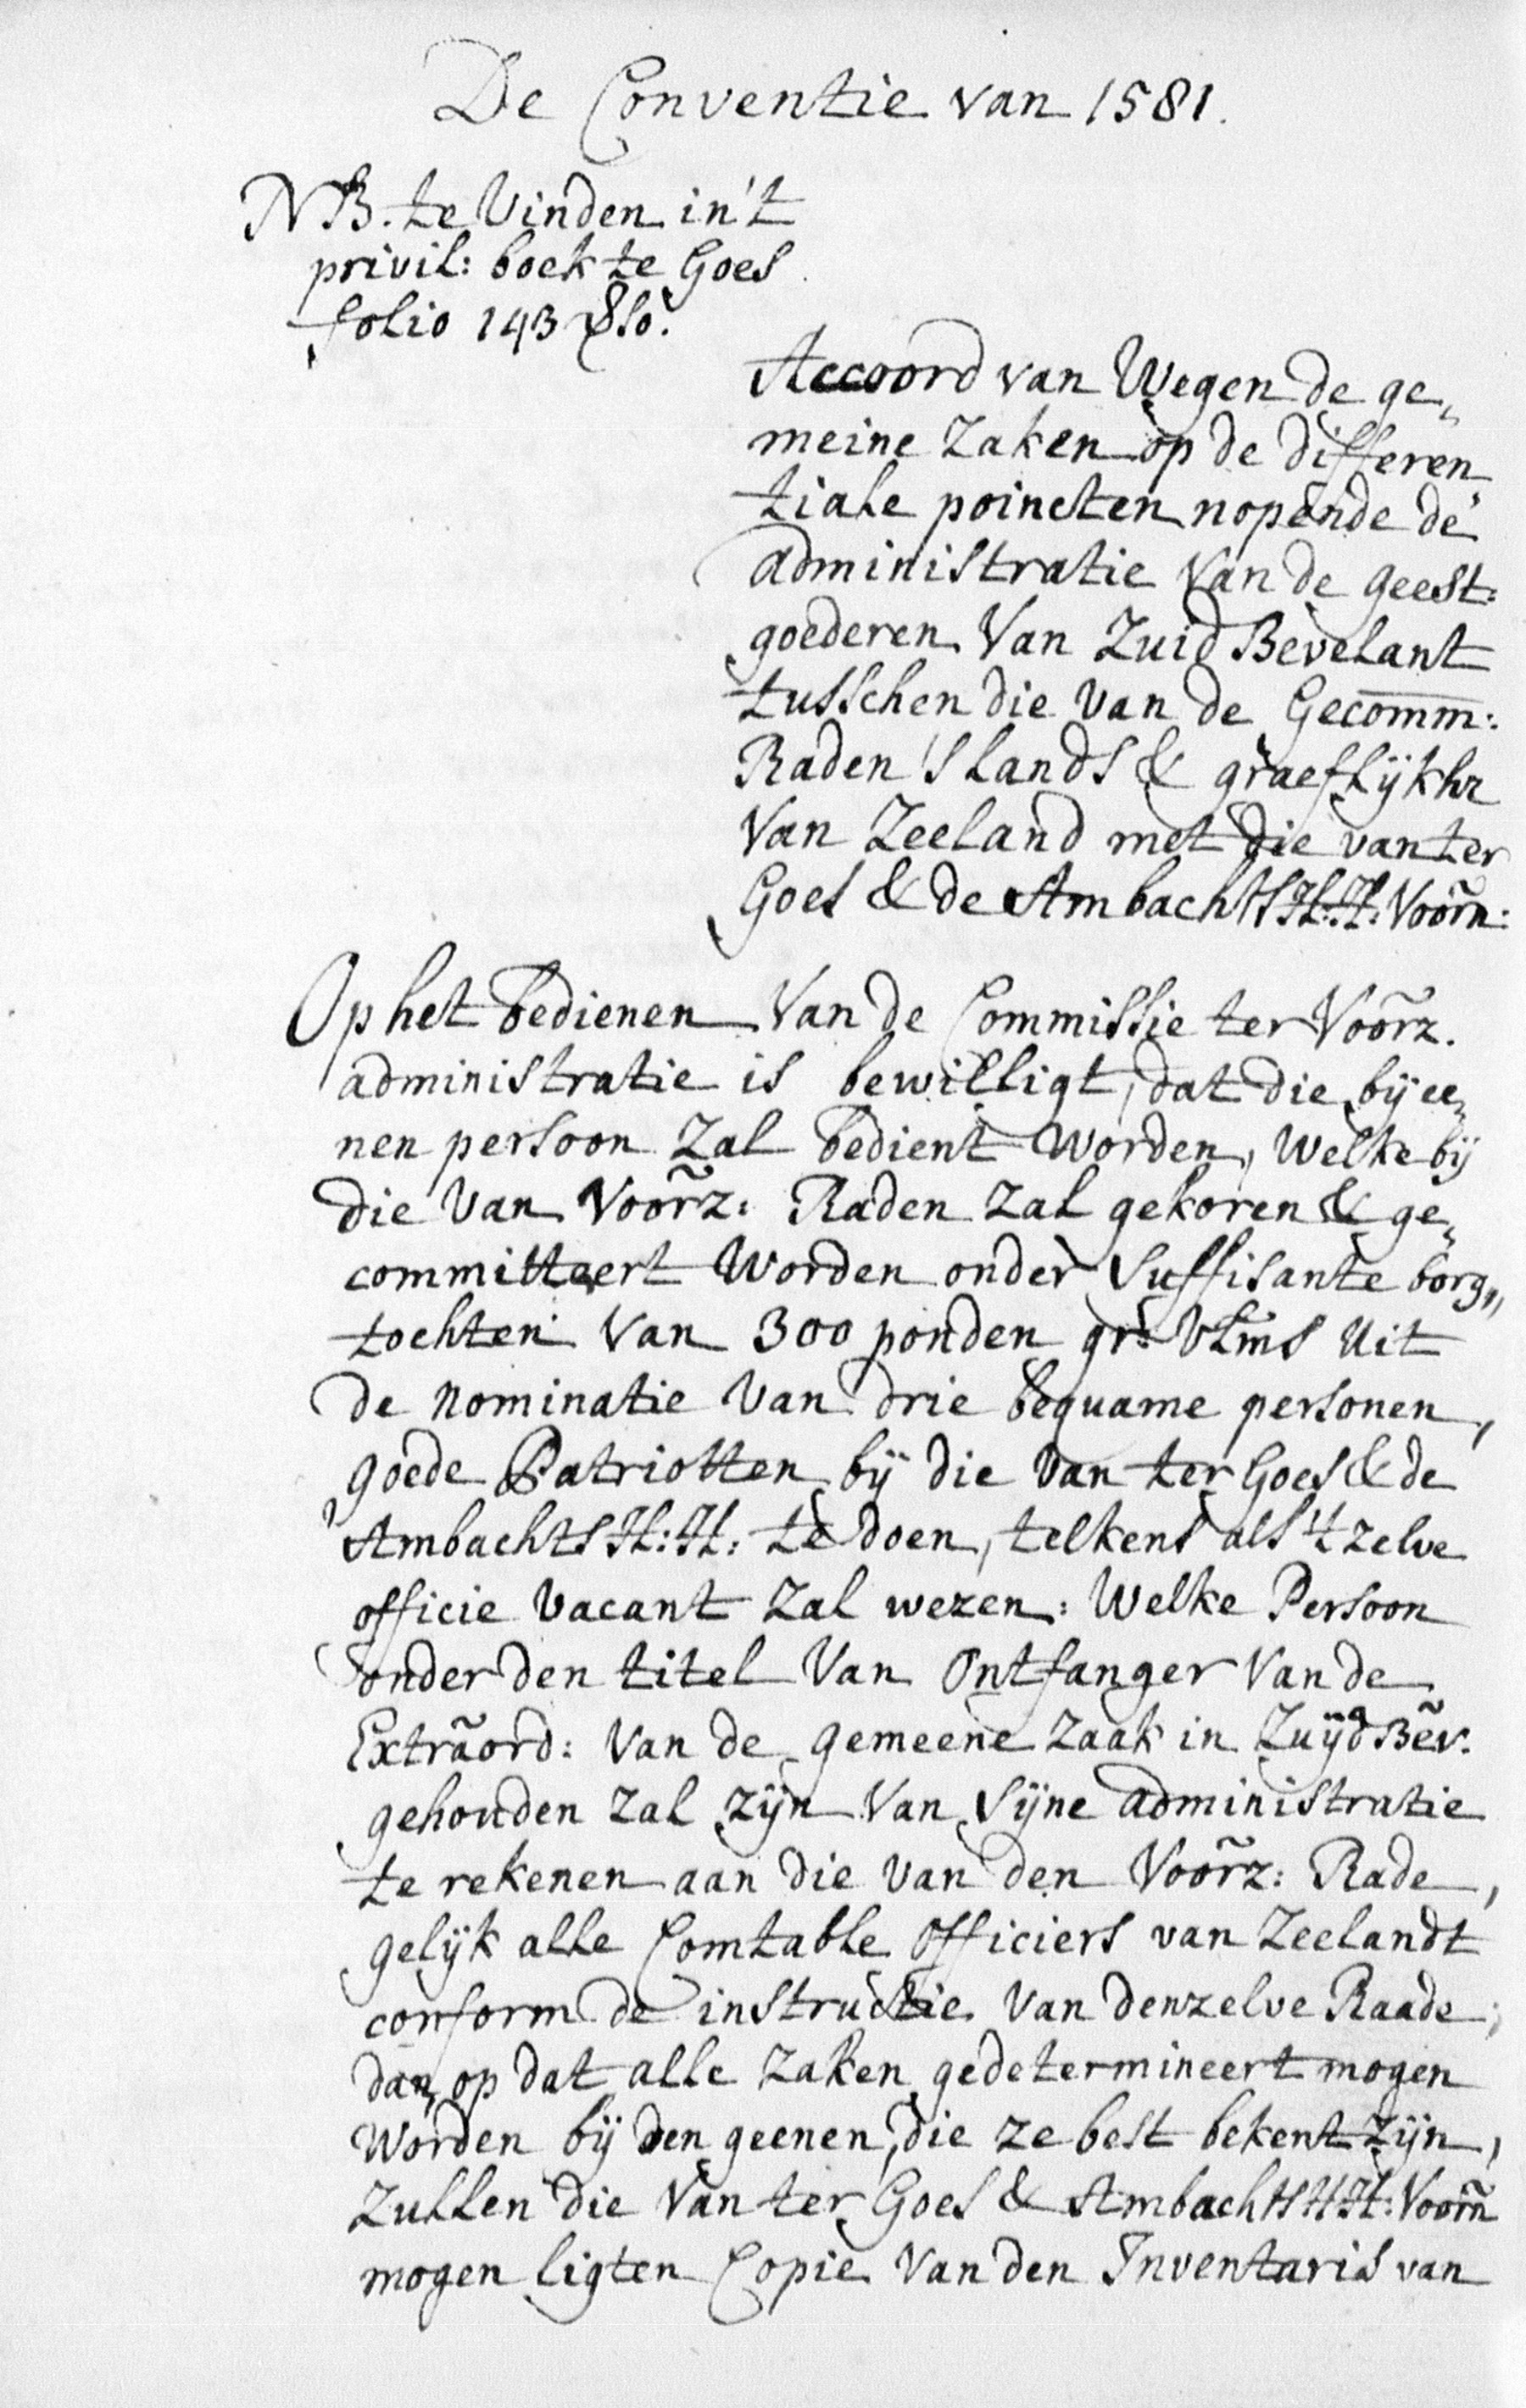 De Conventie van 1581.
NB. te Vinden in't
privil: boek te Goes
folio 143 vso.
Accoord van Wegen de ge„
meine Zaken op de differen„
tiale poincten nopende de
administratie Van de geest:
goederen Van Zuid Bevelant
tusschen die Van de Gecomm:
Raden 'slands & graeflijkhr
Van Zeeland met die vanter
Goes & de Ambachts H:H: Voorñ:
Op het bedienen Van de Commissie ter Voorz̃.
administratie is bewilligt, dat die bij ee„
nen persoon Zal bedient Worden, Welke bij
die Van Voorz̃: Raden Zal gekoren & ge„
committeert Worden onder Suffisante borg„
tochten Van 300 ponden gr: Vlms Uit
de Nominatie Van drie bequame personen,
goede Patriotten bij die Van ter Goes & de
Ambachts H:H: te doen, telkens als 't zelve
officie Vacant Zal wezen: Welke Persoon
onder den titel Van Ontfanger Van de
Extrãord: Van de gemeene Zaak in Zuijd Bẽv.
gehouden Zal zijn Van Sijne administratie
te rekenen aan die Van den Voorz̃: Rade,
gelijk alle Comtable Officiers van Zeelandt
conform de instructie Van denzelve Raade;
dan, op dat alle Zaken gedetermineert mogen
Worden bij den geenen, die ze best bekent zijn,
Zullen die Van ter Goes & Ambachts H:H: Voorñ
mogen ligten Copie Van den Inventaris van